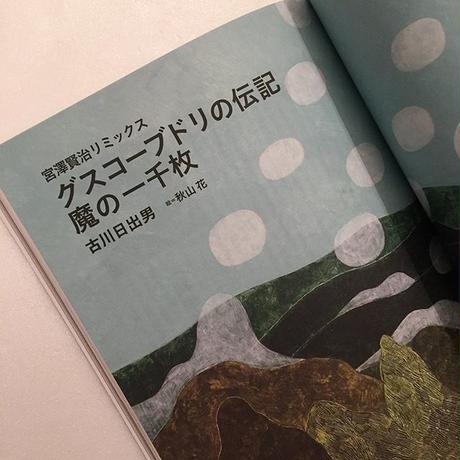 宮澤賢治リミックス
グスコーブドリの伝記
魔の一千枚
古川日出男 絵=秋山花